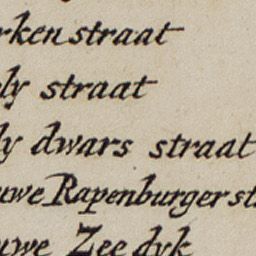 rken straat
ly straat
ly dwars straat
uwe Rapenburger st
uwe Zee dyk